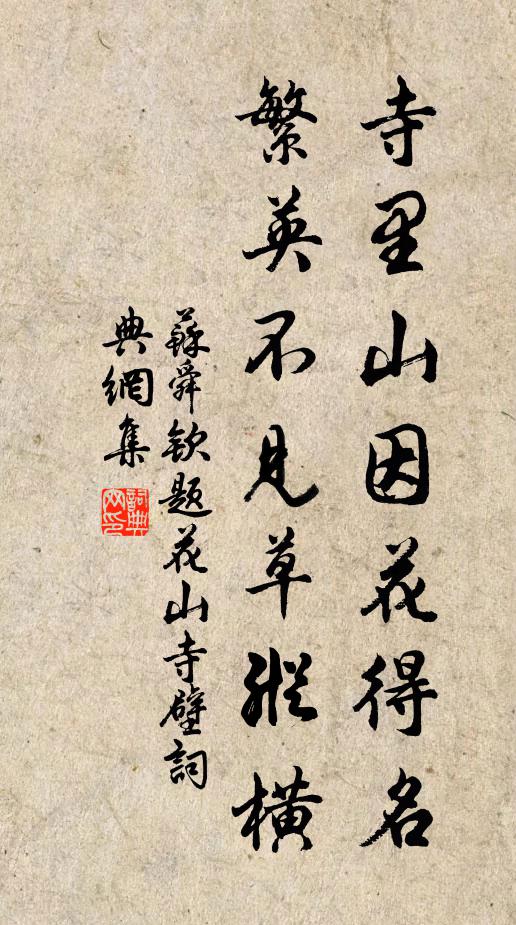 寺里山因花得名
繁英不見草縱橫
蘇舜欽題花山寺壁詞
典網集
詞典网印